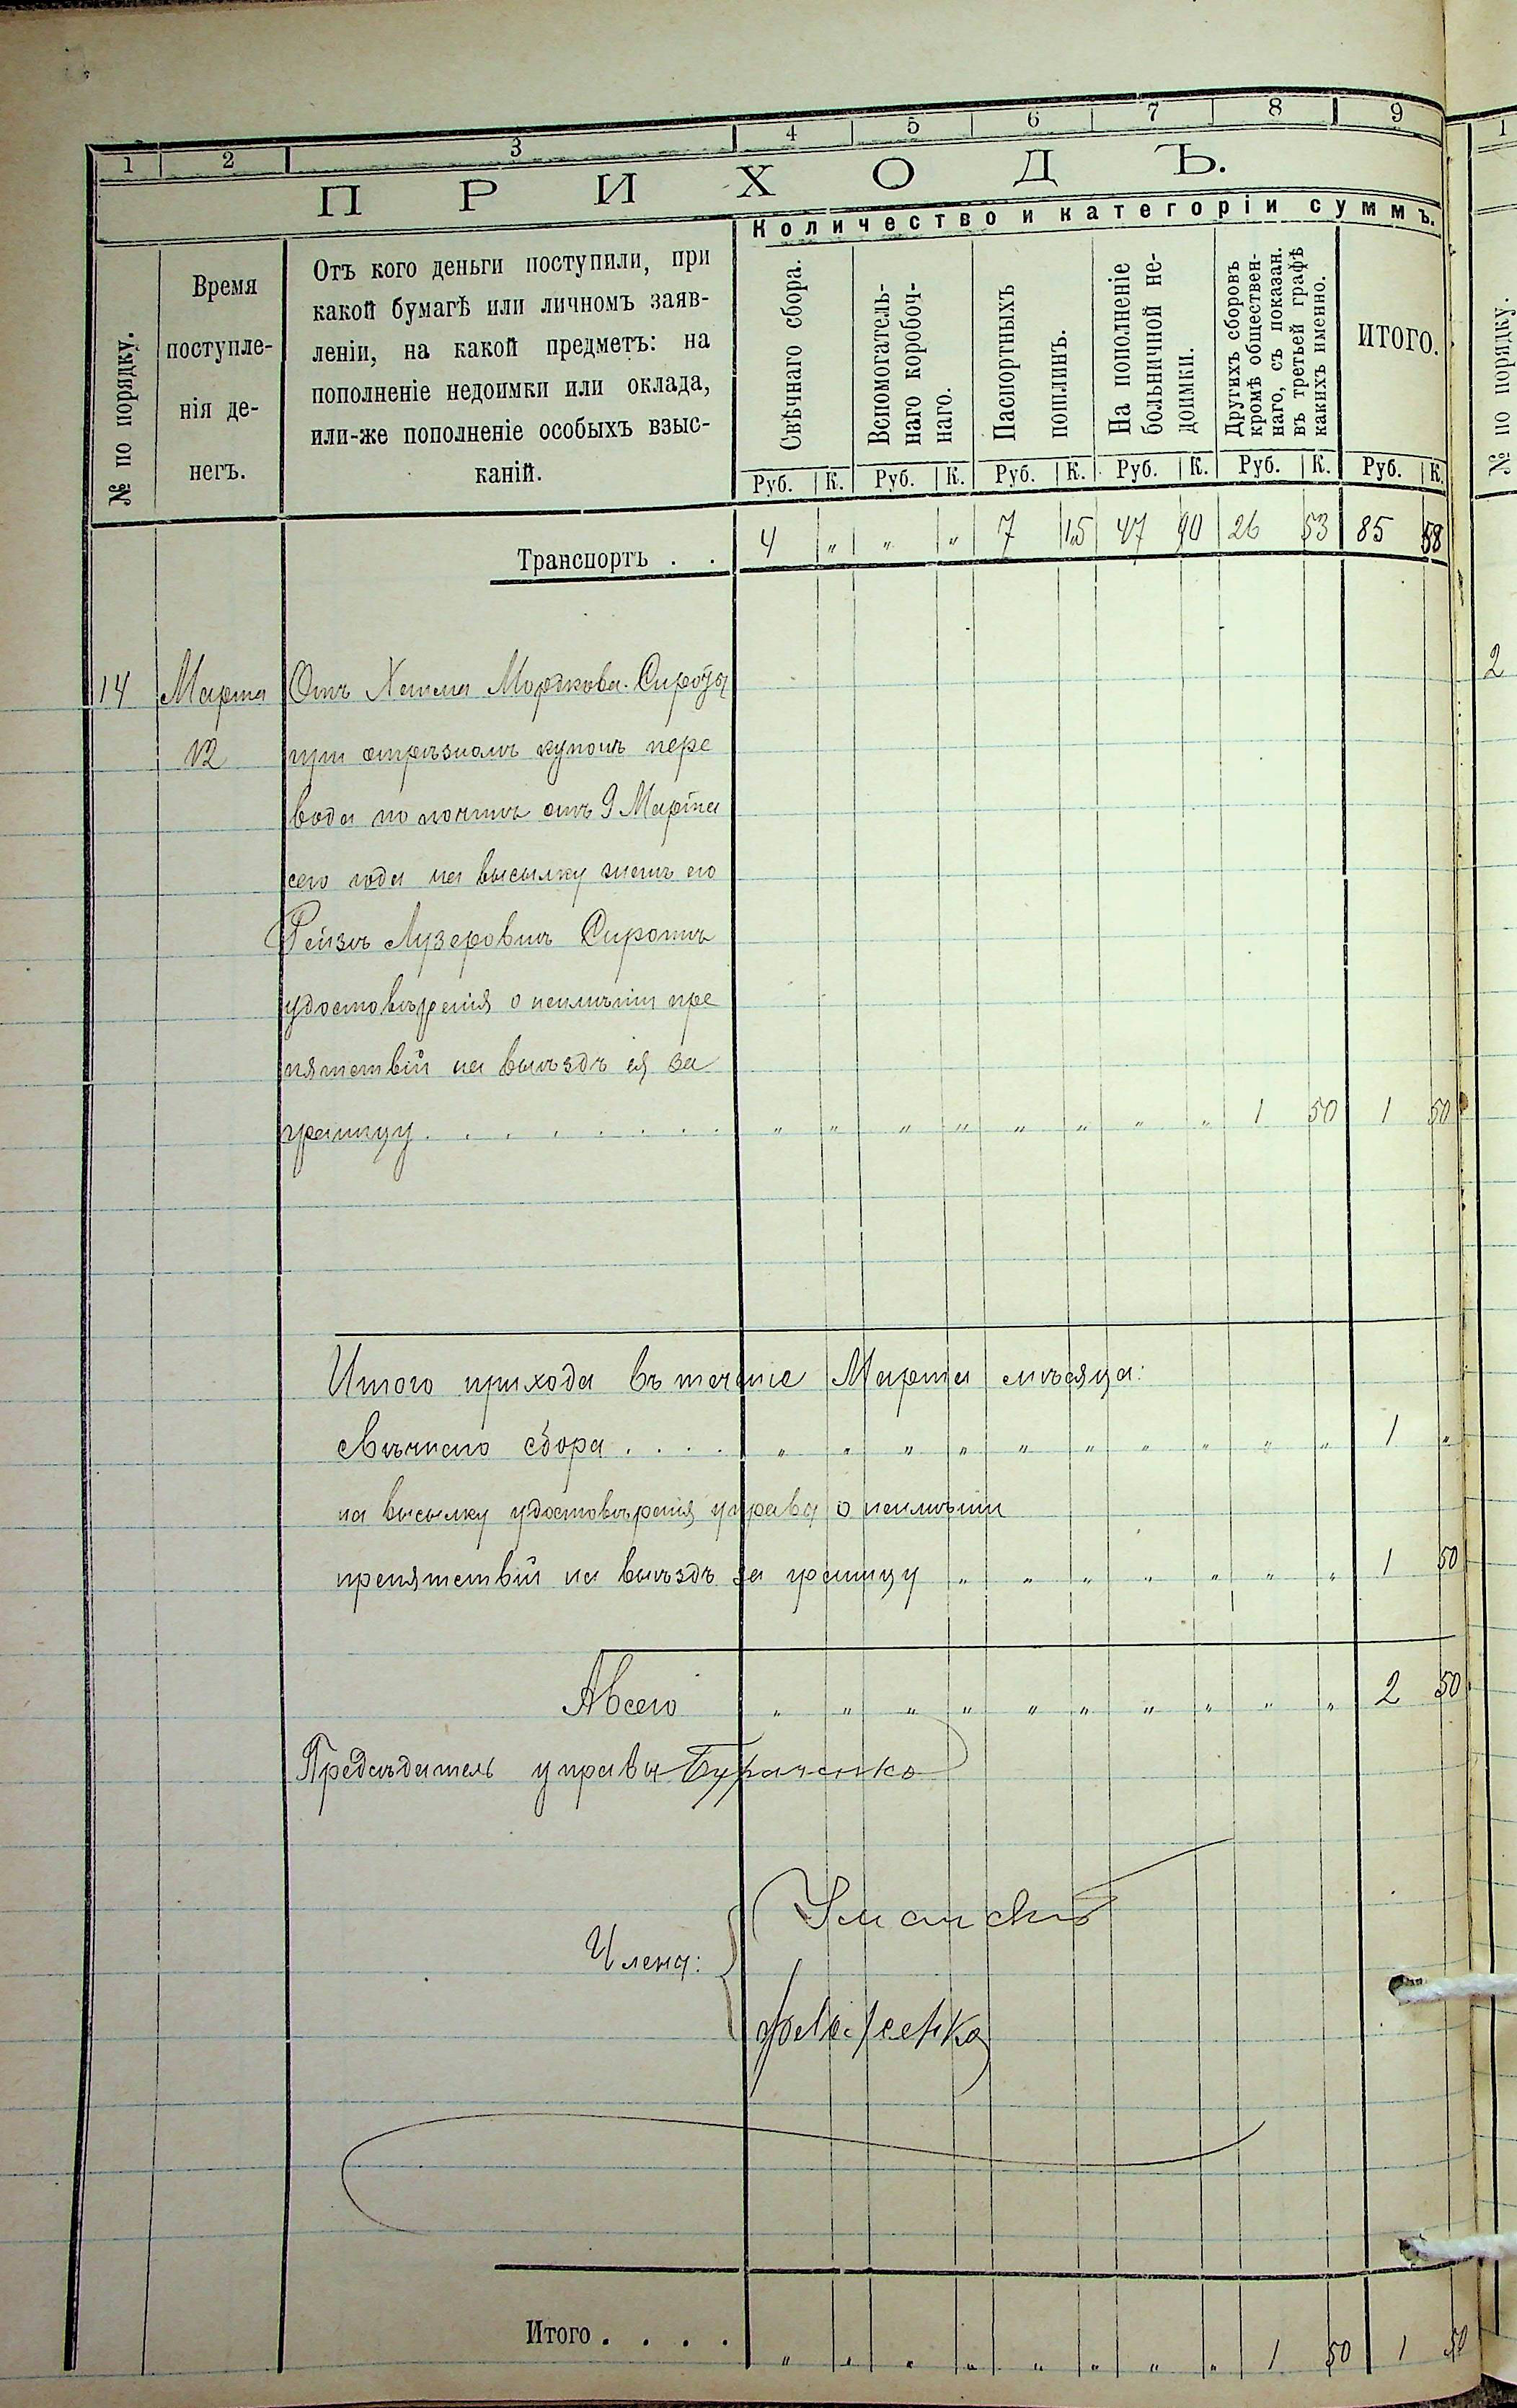 1 2 3 4 5 6 7 8 9
ПРИХОДЪ.
Количество и категоріи суммъ.
№ по порядку.
Время
поступле-
нія де-
негъ.
Отъ кого деньги поступили, при
какой бумагѣ или личномъ заяв-
леніи, на какой предметъ: на
пополненіе недоимки или оклада,
или-же пополненіе особыхъ взыс-
каній.
Свѣчнаго сбора.
Вспомогатель-
наго коробоч-
наго.
Паспортныхъ
пошлинъ.
На пополненіе
больничной не-
доимки.
Другихъ сборовъ
кромѣ обществен-
наго, съ показан.
въ третьей графѣ
какихъ именно.
ИТОГО.
Руб. К. Руб. К. Руб. К. Руб. К. Руб. К. Руб. К.
Транспортъ . . 4 „ „ „ 7 15 47 90 26 53 85 58
14 Марта Отъ Хаима Мордкова Сироты
12 при отрѣзномъ купонѣ пере
вода по почтѣ отъ 9 Марта
сего года на высылку женѣ его
Рейзѣ Лузеровнѣ Сиротѣ
удостовѣренія о неимѣніи пре
пятствій на выѣздъ ея за
границу . . . . . . . . „ „ „ „ „ „ „ „ 1 50 1 50
Итого прихода въ теченіе Марта мѣсяца:
свѣчнаго сбора . . . . „ „ „ „ „ „ „ „ „ „ 1 „
на высылку удостовѣренія управы о неимѣніи
препятствій на выѣздъ за границу „ „ „ „ „ „ „ 1 50
А всего „ „ „ „ „ „ „ „ „ „ 2 50
Предсѣдатель управы Бураченко
Члены: Уманскій
Итого . . . . „ „ „ „ „ „ „ „ 1 50 1 50
1
№ по порядку.
2